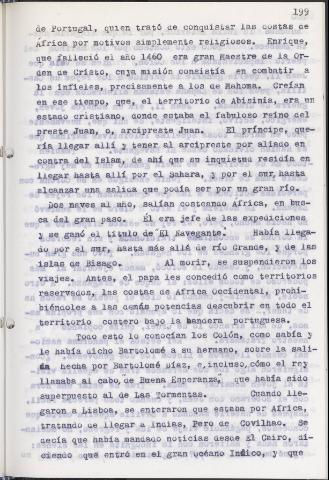 199
de Portugal, quien trató de conquistar las costas de
África por motivos simplemente religiosos. Enrique,
que falleció el año 1460 era gran Maestre de la Or-
den de Cristo, cuya misión consistía en combatir a
los infieles, precisamente a los de Mahoma. Creían
en ese tiempo, que, el territorio de Abisinia, era un
estado cristiano, donde estaba el fabuloso reino del
preste Juan, o, arcipreste Juan. El príncipe, que-
ría llegar allí y tener al arcipreste por aliado en
contra del Islam, de ahí que su inquietud residía en
llegar hasta allí por el Sahara, y por el mur, hasta
alcanzar una salida que podía ser por un gran río.
Dos naves al año, salían costeando África, en bus-
ca del gran paso. Él era jefe de las expediciones
y se ganó el título de "El Navegante". Había llega-
do por el mur, hasta más allá de río Grande, y de las
islas de Bisago. Al morir, se suspendieron los
viajes. Antes, el papa les concedió como territorios
reservados, las costas de África Occidental, prohi-
biéndoles a las demás potencias descubrir en todo el
territorio costero bajo la bandera portuguesa.
Todo esto lo conocían los Colón, como sabía y
le había dicho Bartolomé a su hermano, sobre la sali-
da hecha por Bartolomé Díaz, e,incluso, cómo el rey
llamaba al cabo, de Buena Esperanza, que había sido
superpuesto al de Las Tormentas. Cuando lle-
garon a Lisboa, se enteraron que estaba por África,
tratando de llegar a Indias, Pero de Covilhao. Se
decía que había mandado noticias desde El Cairo, di-
ciendo que entró en el gran océano Indico, y que